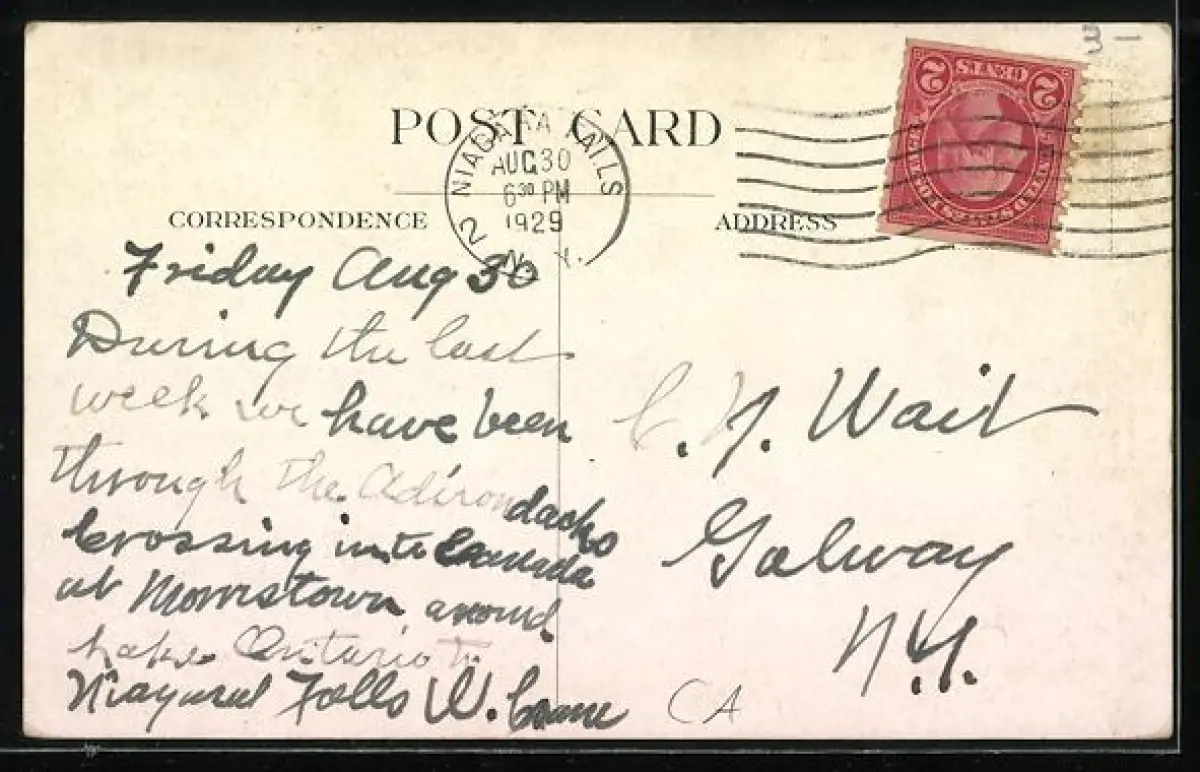 POST CARD
NIAGARA FALLS
AUG 30
6 30 PM
1929
N. Y.
2
2 CENTS 2
CORRESPONDENCE
ADDRESS
Friday Aug 30
During the last
week we have been
through the Adirondacks
Crossing into Canada
at Morristown, around
Lake Ontario to
Niagara Falls W.
C. Y. Wait
Galway
N.Y.
CA